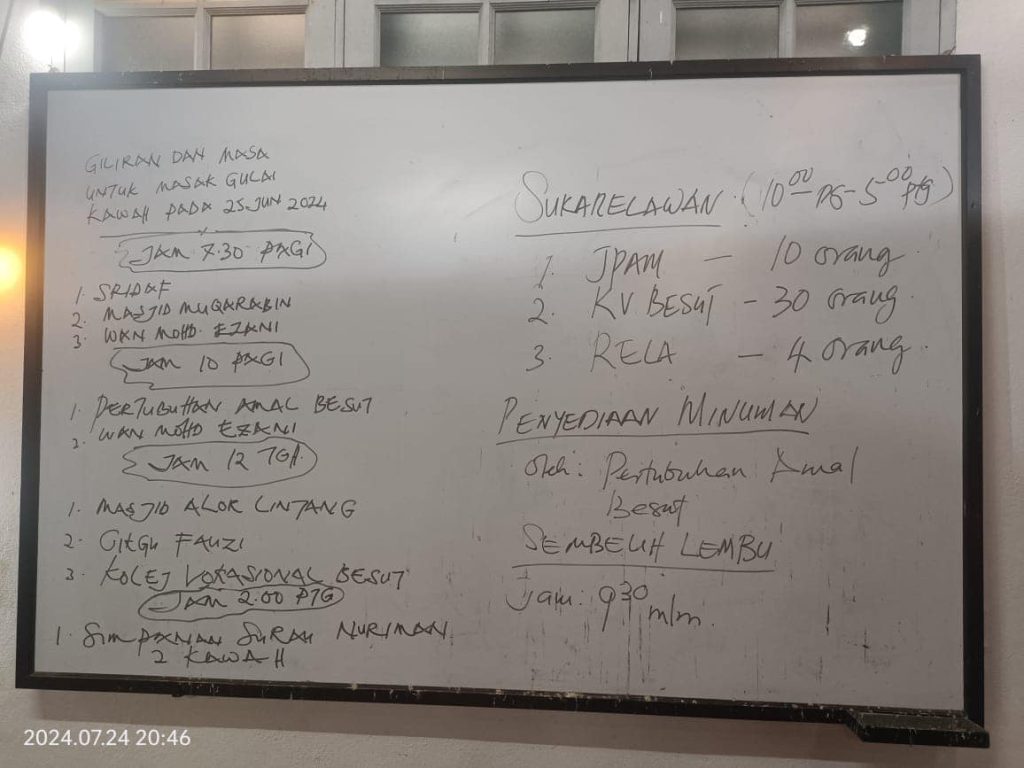 GILIRAN DAN MASA
UNTUK MASAK GULAI
KAWAH PADA 25 JUN 2024
JAM 7.30 PAGI
1. SRIDAF
2. MASJID MUQARABIN
3. WAN MOHD. EZANI
JAM 10 PAGI
1. PERTUBUHAN AMAL BESUT
2. WAN MOHD EZANI
JAM 12 TGH
1. MASJID ALOK LINTANG
2. CIKGU FAUZI
3. KOLEJ VOKASIONAL BESUT
JAM 2.00 PTG
1. SIMPANAN SURAU NURIMAN
2 KAWAH
SUKARELAWAN (10.00 PG - 5.00 Ptg)
1. JPAM — 10 orang
2. KV BESUT - 30 orang
3. RELA — 4 orang
PENYEDIAAN MINUMAN
oleh: Pertubuhan Amal
Besut
SEMBELIH LEMBU
Jam: 9.30 mlm.
2024.07.24 20:46